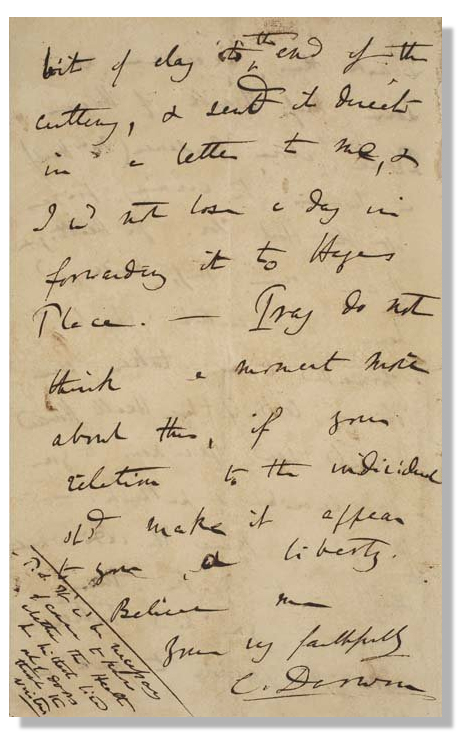 bit of clay to the end of the
cutting, & send it direct
in a letter to me, &
I wd not lose a day in
forwarding it to Hayes
Place. — Pray do not
think a moment more
about this, if your
relation to the individual
shd make it appear
to you a liberty.
Believe me
Yours very faithfully
C. Darwin
P.S. It
to know
whether the Heath
he
to